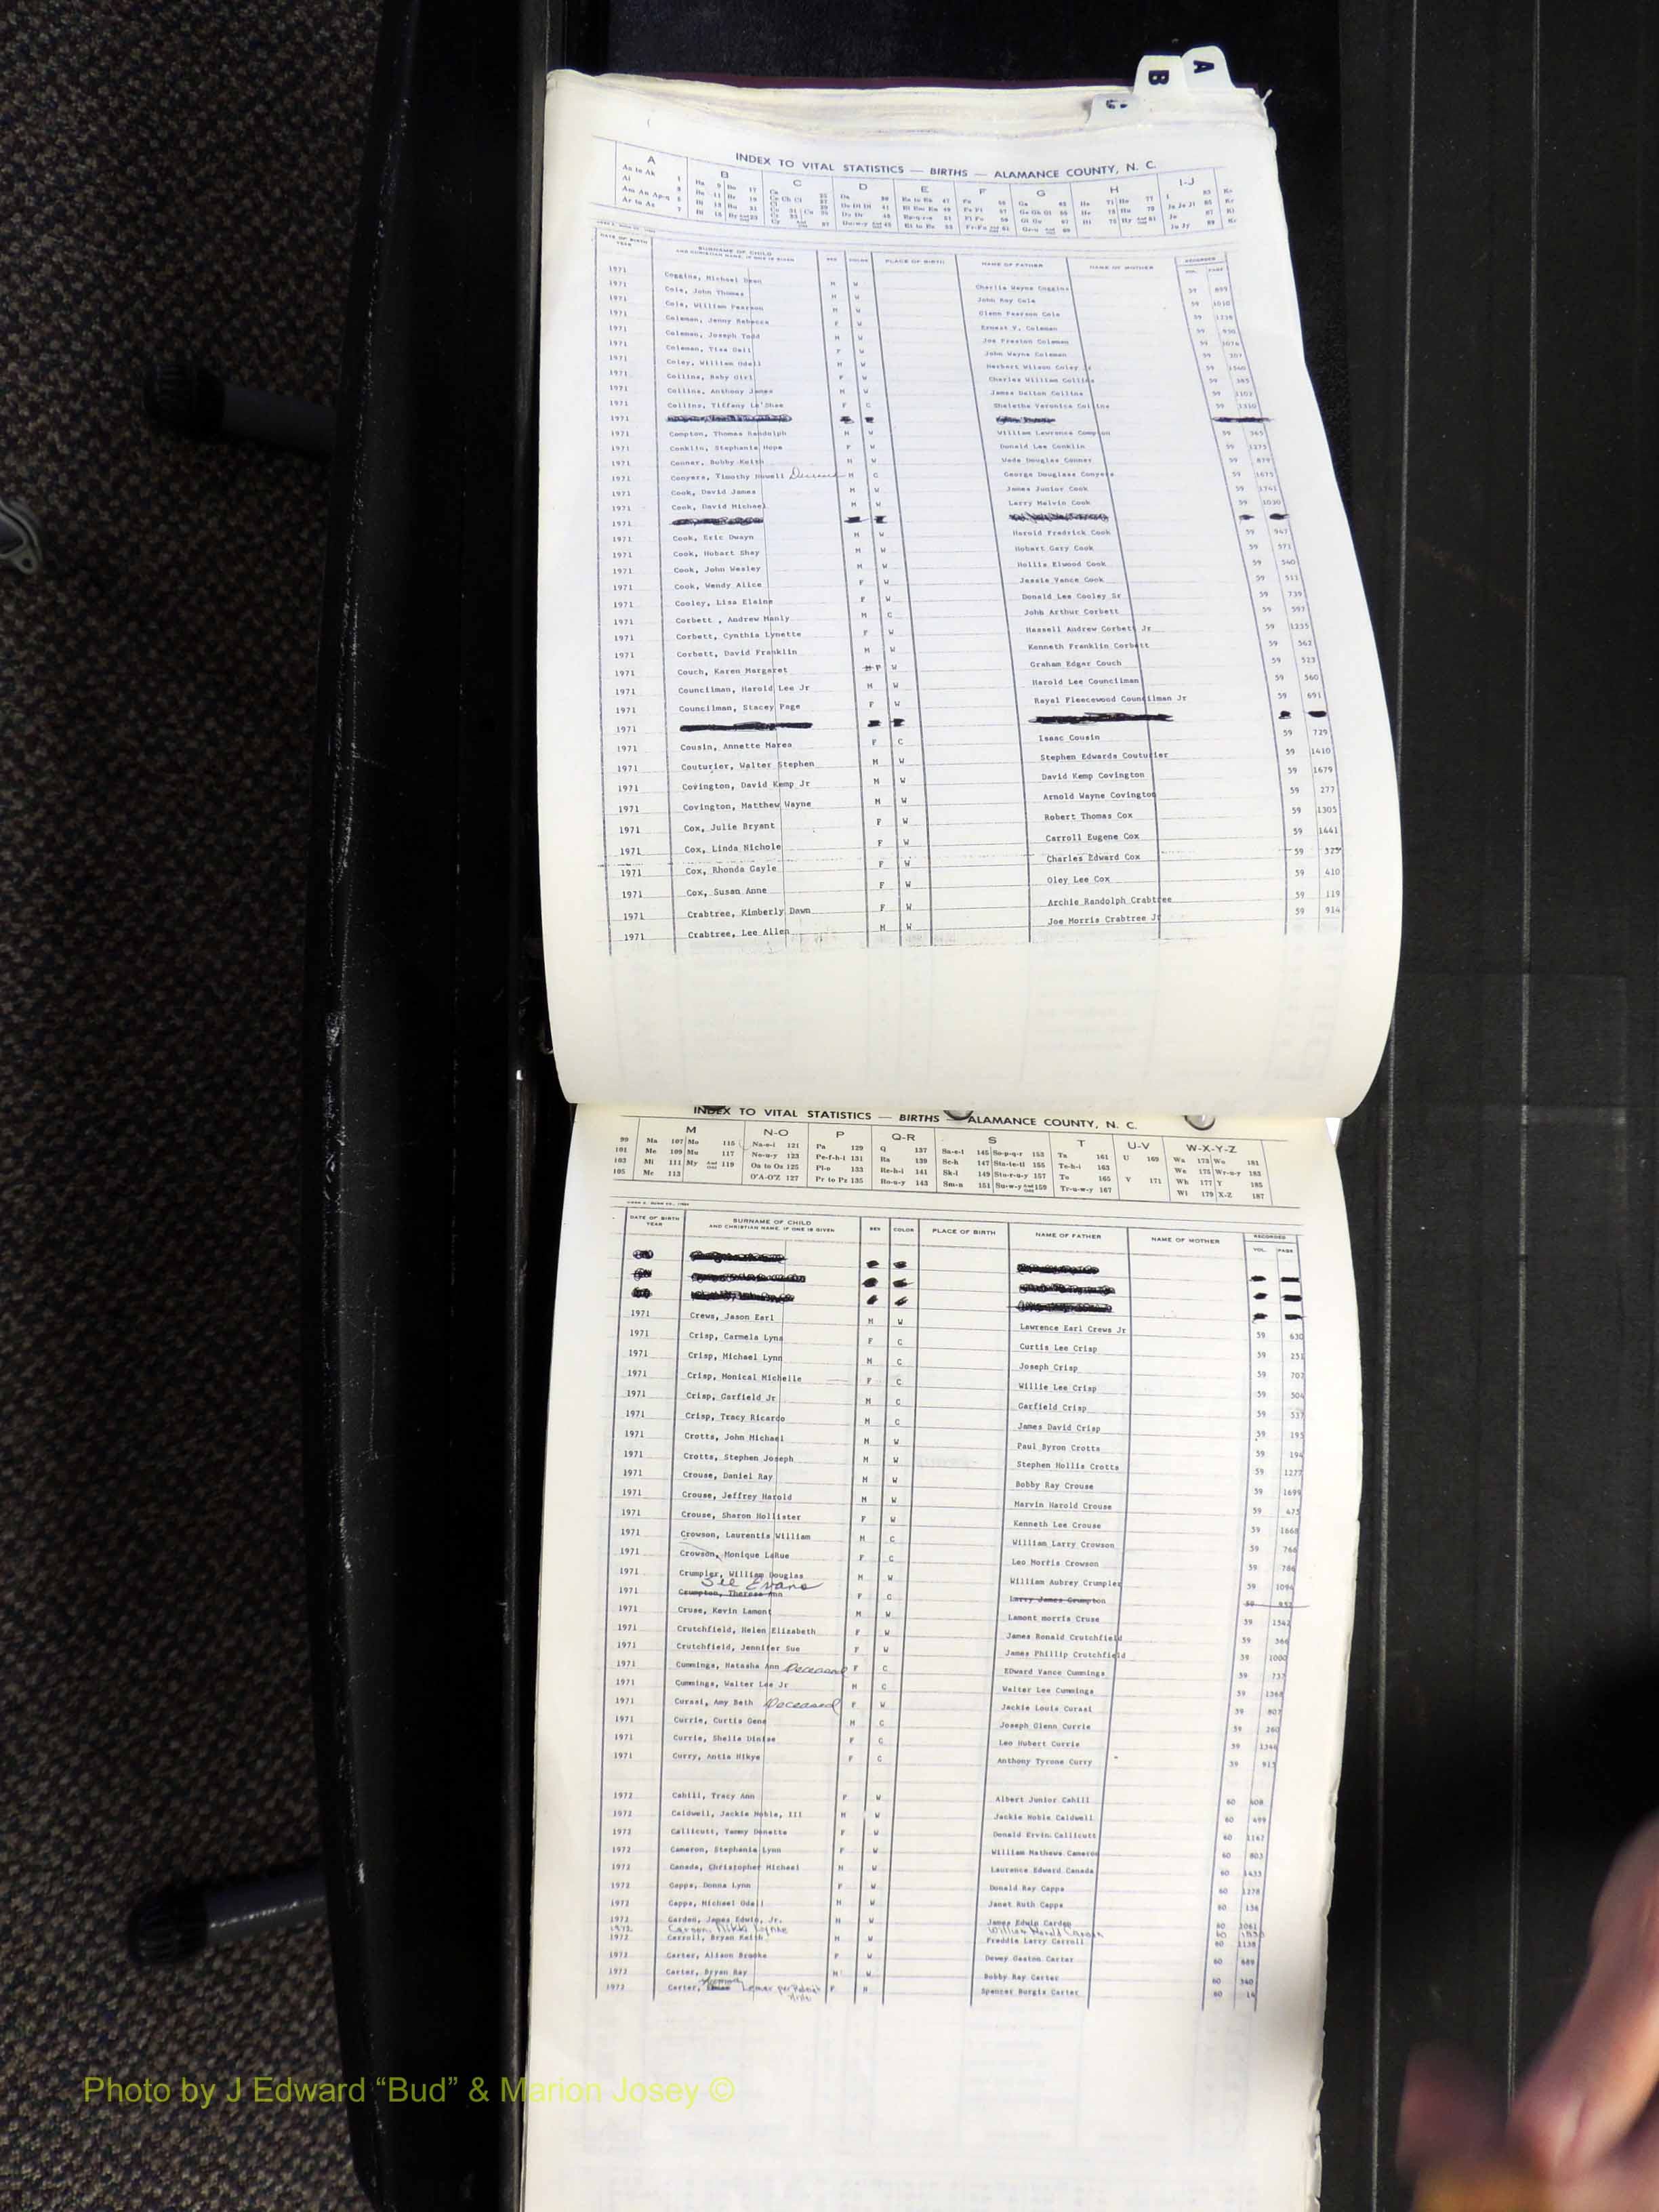 A
B
INDEX TO VITAL STATISTICS — BIRTHS — ALAMANCE COUNTY, N. C.
A B C D E F G H I-J
DATE OF BIRTH YEAR SURNAME OF CHILD AND CHRISTIAN NAME, IF ONE IS GIVEN SEX COLOR PLACE OF BIRTH NAME OF FATHER NAME OF MOTHER RECORDED VOL. PAGE
1971 Coggins, Michael Dean M W Charlie Wayne Coggins 59 895
1971 Cole, John Thomas M W John Ray Cole 59 1010
1971 Cole, William Pearson M W Glenn Pearson Cole 59
1971 Coleman, Jenny Rebecca F W Ernest F. Coleman 59
1971 Coleman, Joseph Todd M W Joe Preston Coleman 59
1971 Coleman, Tina Gail F W John Wayne Coleman 59
1971 Coley, William Odell M W Herbert Wilson Coley 59
1971 Collins, Baby Girl F W Charles William Collins 59
1971 Collins, Anthony James M W James Dalton Collins 59
1971 Collins, Tiffany La'Shae F C Sheletha Veronica Collins 59
1971
1971 Compton, Thomas Randolph M W William Lawrence Compton 59
1971 Conklin, Stephanie Hope F W Donald Lee Conklin 59 1275
1971 Conner, Bobby Keith M W Wade Douglas Conner 59 879
1971 Conyers, Timothy Howell Deceased M C George Douglass Conyers 59 1675
1971 Cook, David James M W James Junior Cook 59 1741
1971 Cook, David Michael M W Larry Melvin Cook 59 1030
1971
1971 Cook, Eric Dwayn M W Harold Fredrick Cook 59 947
1971 Cook, Hobart Shay M W Hobart Gary Cook 59 571
1971 Cook, John Wesley M W Hollis Elwood Cook 59 540
1971 Cook, Wendy Alice F W Jessie Vance Cook 59 511
1971 Cooley, Lisa Elaine F W Donald Lee Cooley Sr 59 739
1971 Corbett , Andrew Manly M C John Arthur Corbett 59 597
1971 Corbett, Cynthia Lynette F W Hassell Andrew Corbett Jr 59 1235
1971 Corbett, David Franklin M W Kenneth Franklin Corbett 59 563
1971 Couch, Karen Margaret M F W Graham Edgar Couch 59 523
1971 Councilman, Harold Lee Jr M W Harold Lee Councilman 59 560
1971 Councilman, Stacey Page F W Royal Fleecewood Councilman Jr 59 691
1971
1971 Cousin, Annette Marea F C Isaac Cousin 59 729
1971 Couturier, Walter Stephen M W Stephen Edwards Couturier 59 1410
1971 Covington, David Kemp Jr M W David Kemp Covington 59 1679
1971 Covington, Matthew Wayne M W Arnold Wayne Covington 59 277
1971 Cox, Julie Bryant F W Robert Thomas Cox 59 1305
1971 Cox, Linda Nichole F W Carroll Eugene Cox 59 1441
1971 Cox, Rhonda Gayle F W Charles Edward Cox 59 325
1971 Cox, Susan Anne F W Oley Lee Cox 59 410
1971 Crabtree, Kimberly Dawn F W Archie Randolph Crabtree 59 119
1971 Crabtree, Lee Allen M W Joe Morris Crabtree Jr 59 914
INDEX TO VITAL STATISTICS — BIRTHS — ALAMANCE COUNTY, N. C.
M N-O P Q-R S T U-V W-X-Y-Z
99 Ma 107 Mo 115 Na-e-i 121 Pa 129 Q 137 Sa-e-l 145 So-p-q-r 153 Ta 161 U 169 Wa 173 Wo 181
101 Me 109 Mu 117 No-u-y 123 Pe-f-h-i 131 Ra 139 Sc-h 147 Sta-te-ti 155 Te-h-i 163 We 175 Wr-u-y 183
103 Mi 111 My And Odd 119 Oa to Oz 125 Pl-o 133 Re-h-i 141 Sk-l 149 Sto-r-u-y 157 To 165 V 171 Wh 177 Y 185
105 Mc 113 O'A-O'Z 127 Pr to Pz 135 Ro-u-y 143 Sm-n 151 Su-w-y And Odd 159 Tr-u-w-y 167 Wi 179 X-Z 187
DATE OF BIRTH YEAR SURNAME OF CHILD AND CHRISTIAN NAME, IF ONE IS GIVEN SEX COLOR PLACE OF BIRTH NAME OF FATHER NAME OF MOTHER RECORDED VOL. PAGE
1971 Crews, Jason Earl M W Lawrence Earl Crews Jr 59 630
1971 Crisp, Carmela Lynn F C Curtis Lee Crisp 59 251
1971 Crisp, Michael Lynn M C Joseph Crisp 59 707
1971 Crisp, Monical Michelle F C Willie Lee Crisp 59 504
1971 Crisp, Garfield Jr M C Garfield Crisp 59 537
1971 Crisp, Tracy Ricardo M C James David Crisp 59 195
1971 Crotts, John Michael M W Paul Byron Crotts 59 194
1971 Crotts, Stephen Joseph M W Stephen Hollis Crotts 59 1277
1971 Crouse, Daniel Ray M W Bobby Ray Crouse 59 1699
1971 Crouse, Jeffrey Harold M W Marvin Harold Crouse 59 475
1971 Crouse, Sharon Hollister F W Kenneth Lee Crouse 59 1668
1971 Crowson, Laurentis William M C William Larry Crowson 59 766
1971 Crowson, Monique LaRue F C Leo Norris Crowson 59 786
1971 Crumpler, William Douglas M W William Aubrey Crumpler 59 1094
See Evans
1971 Crumpton, Theresa Ann F C Larry James Crumpton 59 952
1971 Cruse, Kevin Lamont M W Lamont morris Cruse 59 1542
1971 Crutchfield, Helen Elizabeth F W James Ronald Crutchfield 59 366
1971 Crutchfield, Jennifer Sue F W James Phillip Crutchfield 59 1000
1971 Cummings, Natasha Ann Deceased F C EDward Vance Cummings 59 737
1971 Cummings, Walter Lee Jr M C Walter Lee Cummings 59 1368
1971 Curasi, Amy Beth Deceased F W Jackie Louis Curasi 59 807
1971 Currie, Curtis Gene M C Joseph Glenn Currie 59 260
1971 Currie, Shelia Dinise F C Leo Hubert Currie 59 1346
1971 Curry, Antia Hikye F C Anthony Tyrone Curry 59 915
1972 Cahill, Tracy Ann F W Albert Junior Cahill 60 408
1972 Caldwell, Jackie Noble, III M W Jackie Noble Caldwell 60 499
1972 Callicutt, Tammy Donette F W Donald Ervin Callicutt 60 1167
1972 Cameron, Stephenie Lynn F W William Mathews Cameron 60 803
1972 Canada, Christopher Michael M W Laurence Edward Canada 60 1433
1972 Capps, Donna Lynn F W Donald Ray Capps 60 1278
1972 Capps, Michael Odell M W Janet Ruth Capps 60 136
1972 Carden, James Edwin, Jr. M W James Edwin Carden 60 1061
1972 Carson, Nikki Lynne William Harold Carson 60
1972 Carroll, Bryan Keith M W Freddie Larry Carroll 60 1138
1972 Carter, Alison Brooke F W Dewey Gaston Carter 60 689
1972 Carter, Bryan Ray M W Bobby Ray Carter 60 340
1972 Carter, Lamar per F N Spencer Burgis Carter 60 14
Photo by J Edward “Bud” & Marion Josey ©